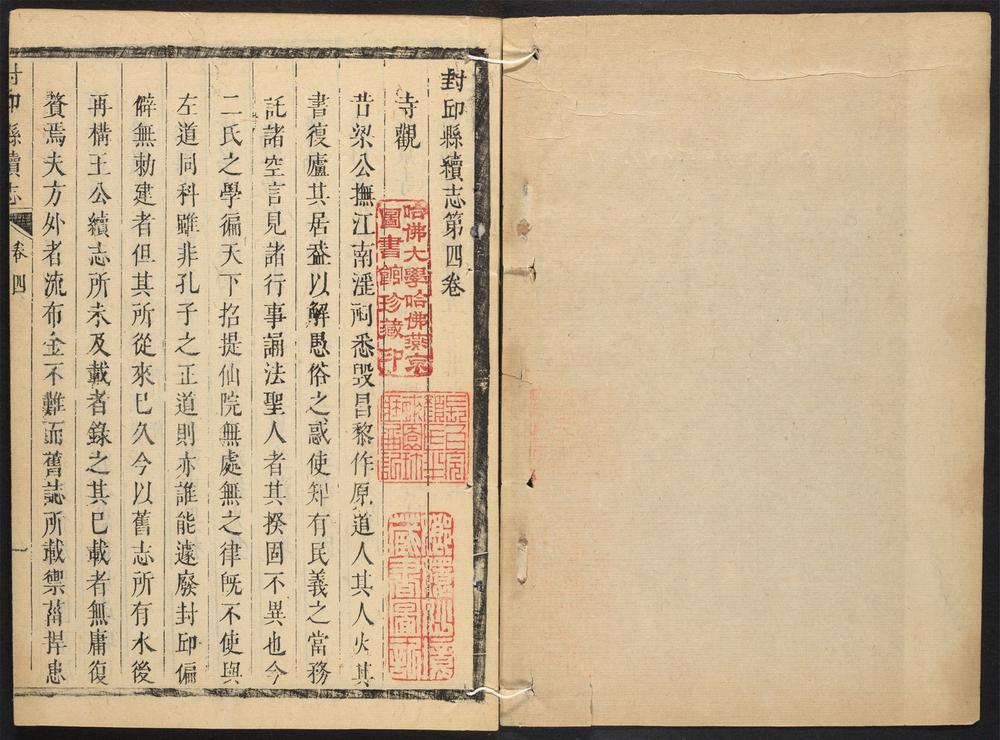 封邱縣續志第四卷
寺觀
昔梁公撫江南淫祠悉毀昌黎作原道人其人火其
書復廬其居葢以解愚俗之惑使知有民義之當務
託諸空言見諸行事誦法聖人者其揆固不異也今
二氏之學徧天下招提仙院無處無之律旣不使與
左道同科雖非孔子之正道則亦誰能遽廢封邱偏
僻無勅建者但其所從來已久今以舊志所有水後
再構王公續志所未及載者錄之其已載者無庸復
贅焉夫方外者流布金不難而舊誌所載禦菑捍患
封邱縣續志
卷四
一
哈佛大學哈佛燕京
圖書館珍藏印